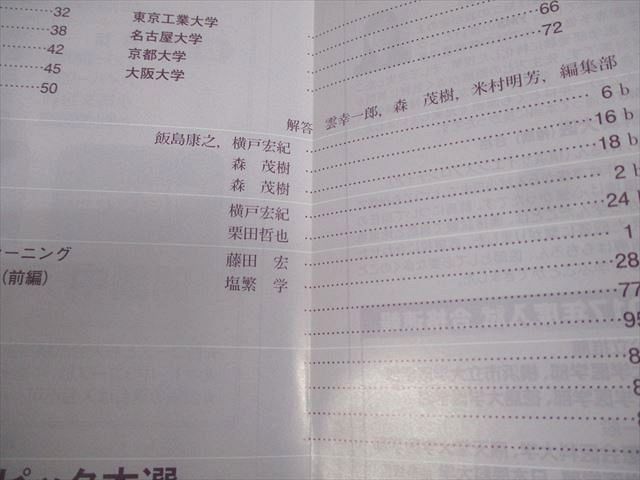 32 東京工業大学 66
38 名古屋大学 72
42 京都大学
45 大阪大学
50
解答 雲幸一郎, 森 茂樹, 米村明芳, 編集部
飯島康之, 横戸宏紀 6 b
森 茂樹 16 b
森 茂樹 18 b
横戸宏紀 2 b
栗田哲也 24
ーニング 藤田 宏 1
(前編) 塩繁 学 28
77
95
8
8
ピック本選